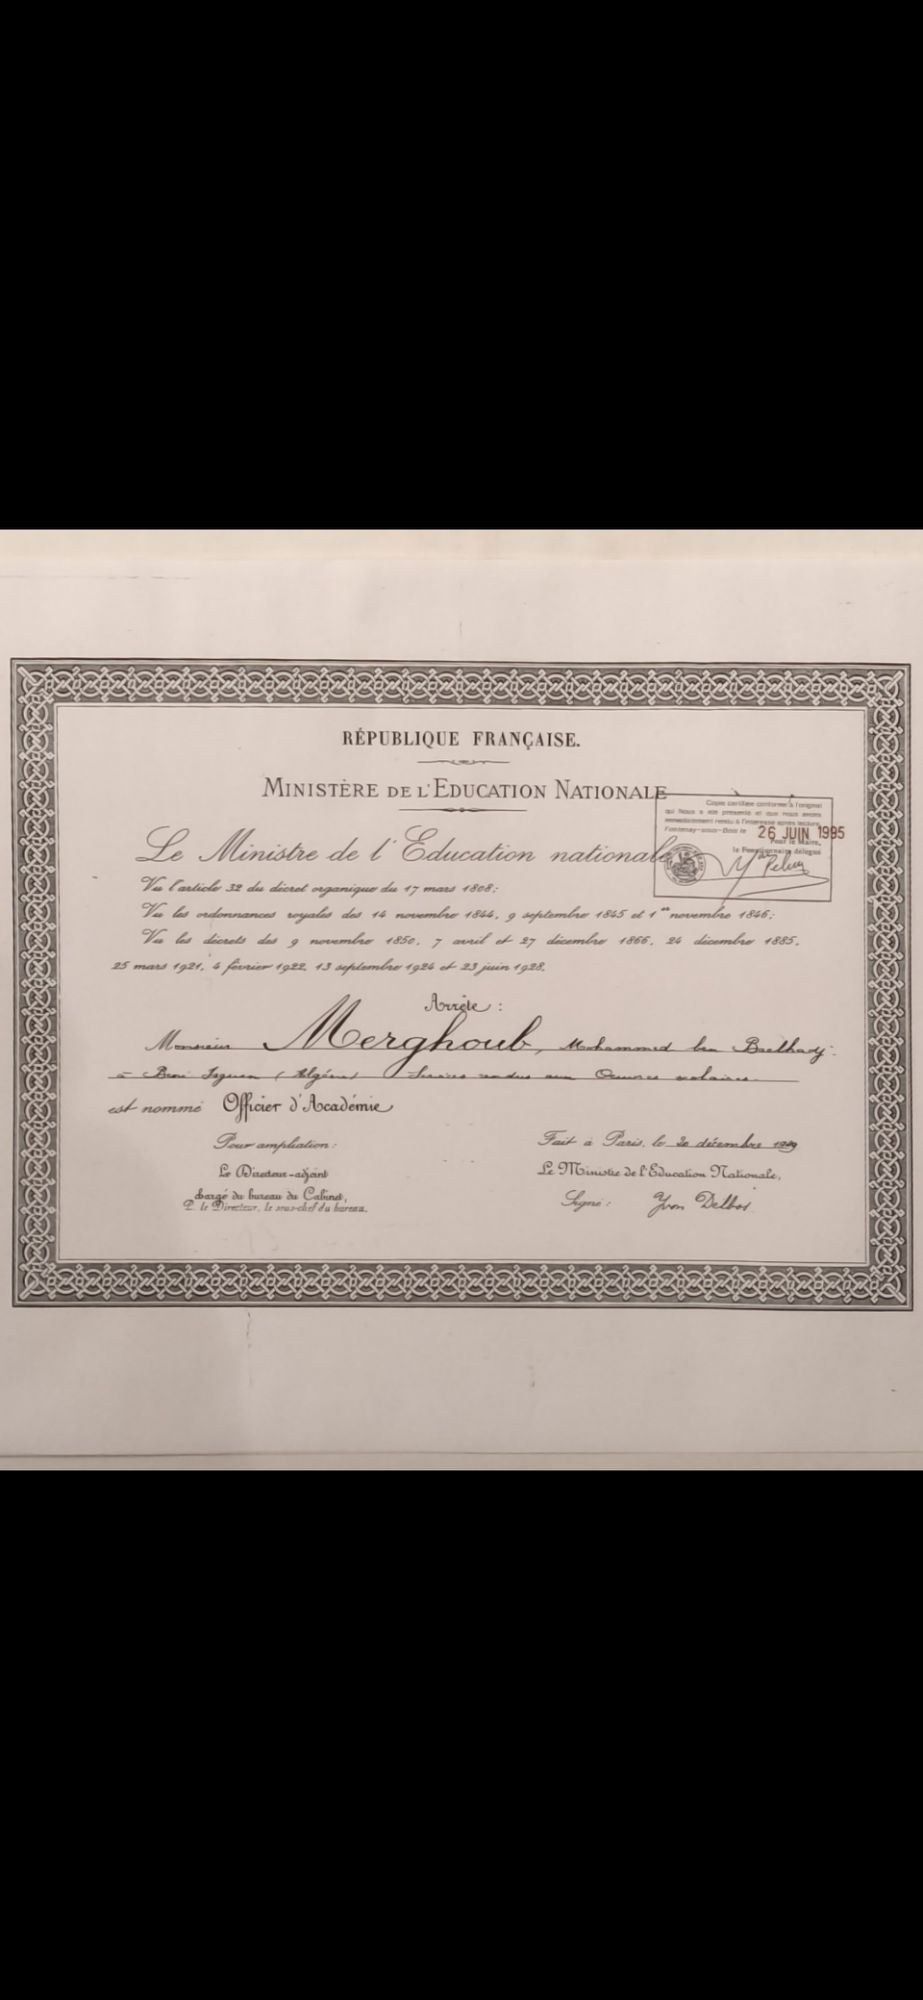 RÉPUBLIQUE FRANÇAISE.
MINISTÈRE DE L'EDUCATION NATIONALE
Copie certifiée conforme à l'original
qui Nous a été présenté et que nous avons
immédiatement rendu à l'intéressé après lecture.
Fontenay-sous-Bois le 26 JUIN 1995
Pour le Maire,
le Fonctionnaire délégué
Le Ministre de l'Education nationale
Vu l'article 32 du décret organique du 17 mars 1808;
Vu les ordonnances royales des 14 novembre 1844, 9 septembre 1845 et 1er novembre 1846;
Vu les décrets des 9 novembre 1850, 7 avril et 27 décembre 1866, 24 décembre 1885,
25 mars 1921, 4 février 1922, 13 septembre 1924 et 23 juin 1928,
Arrête :
Monsieur Merghoub, Mohammed ben Baelhadj
à Beni Isguen (Algérie) Services rendus aux Oeuvres scolaires
est nommé Officier d'Académie
Pour ampliation :
Le Directeur-adjoint
chargé du bureau du Cabinet,
P. le Directeur, le sous-chef du bureau.
Fait à Paris, le 20 décembre 1949
Le Ministre de l'Education Nationale,
Signé : Yvon Delbos